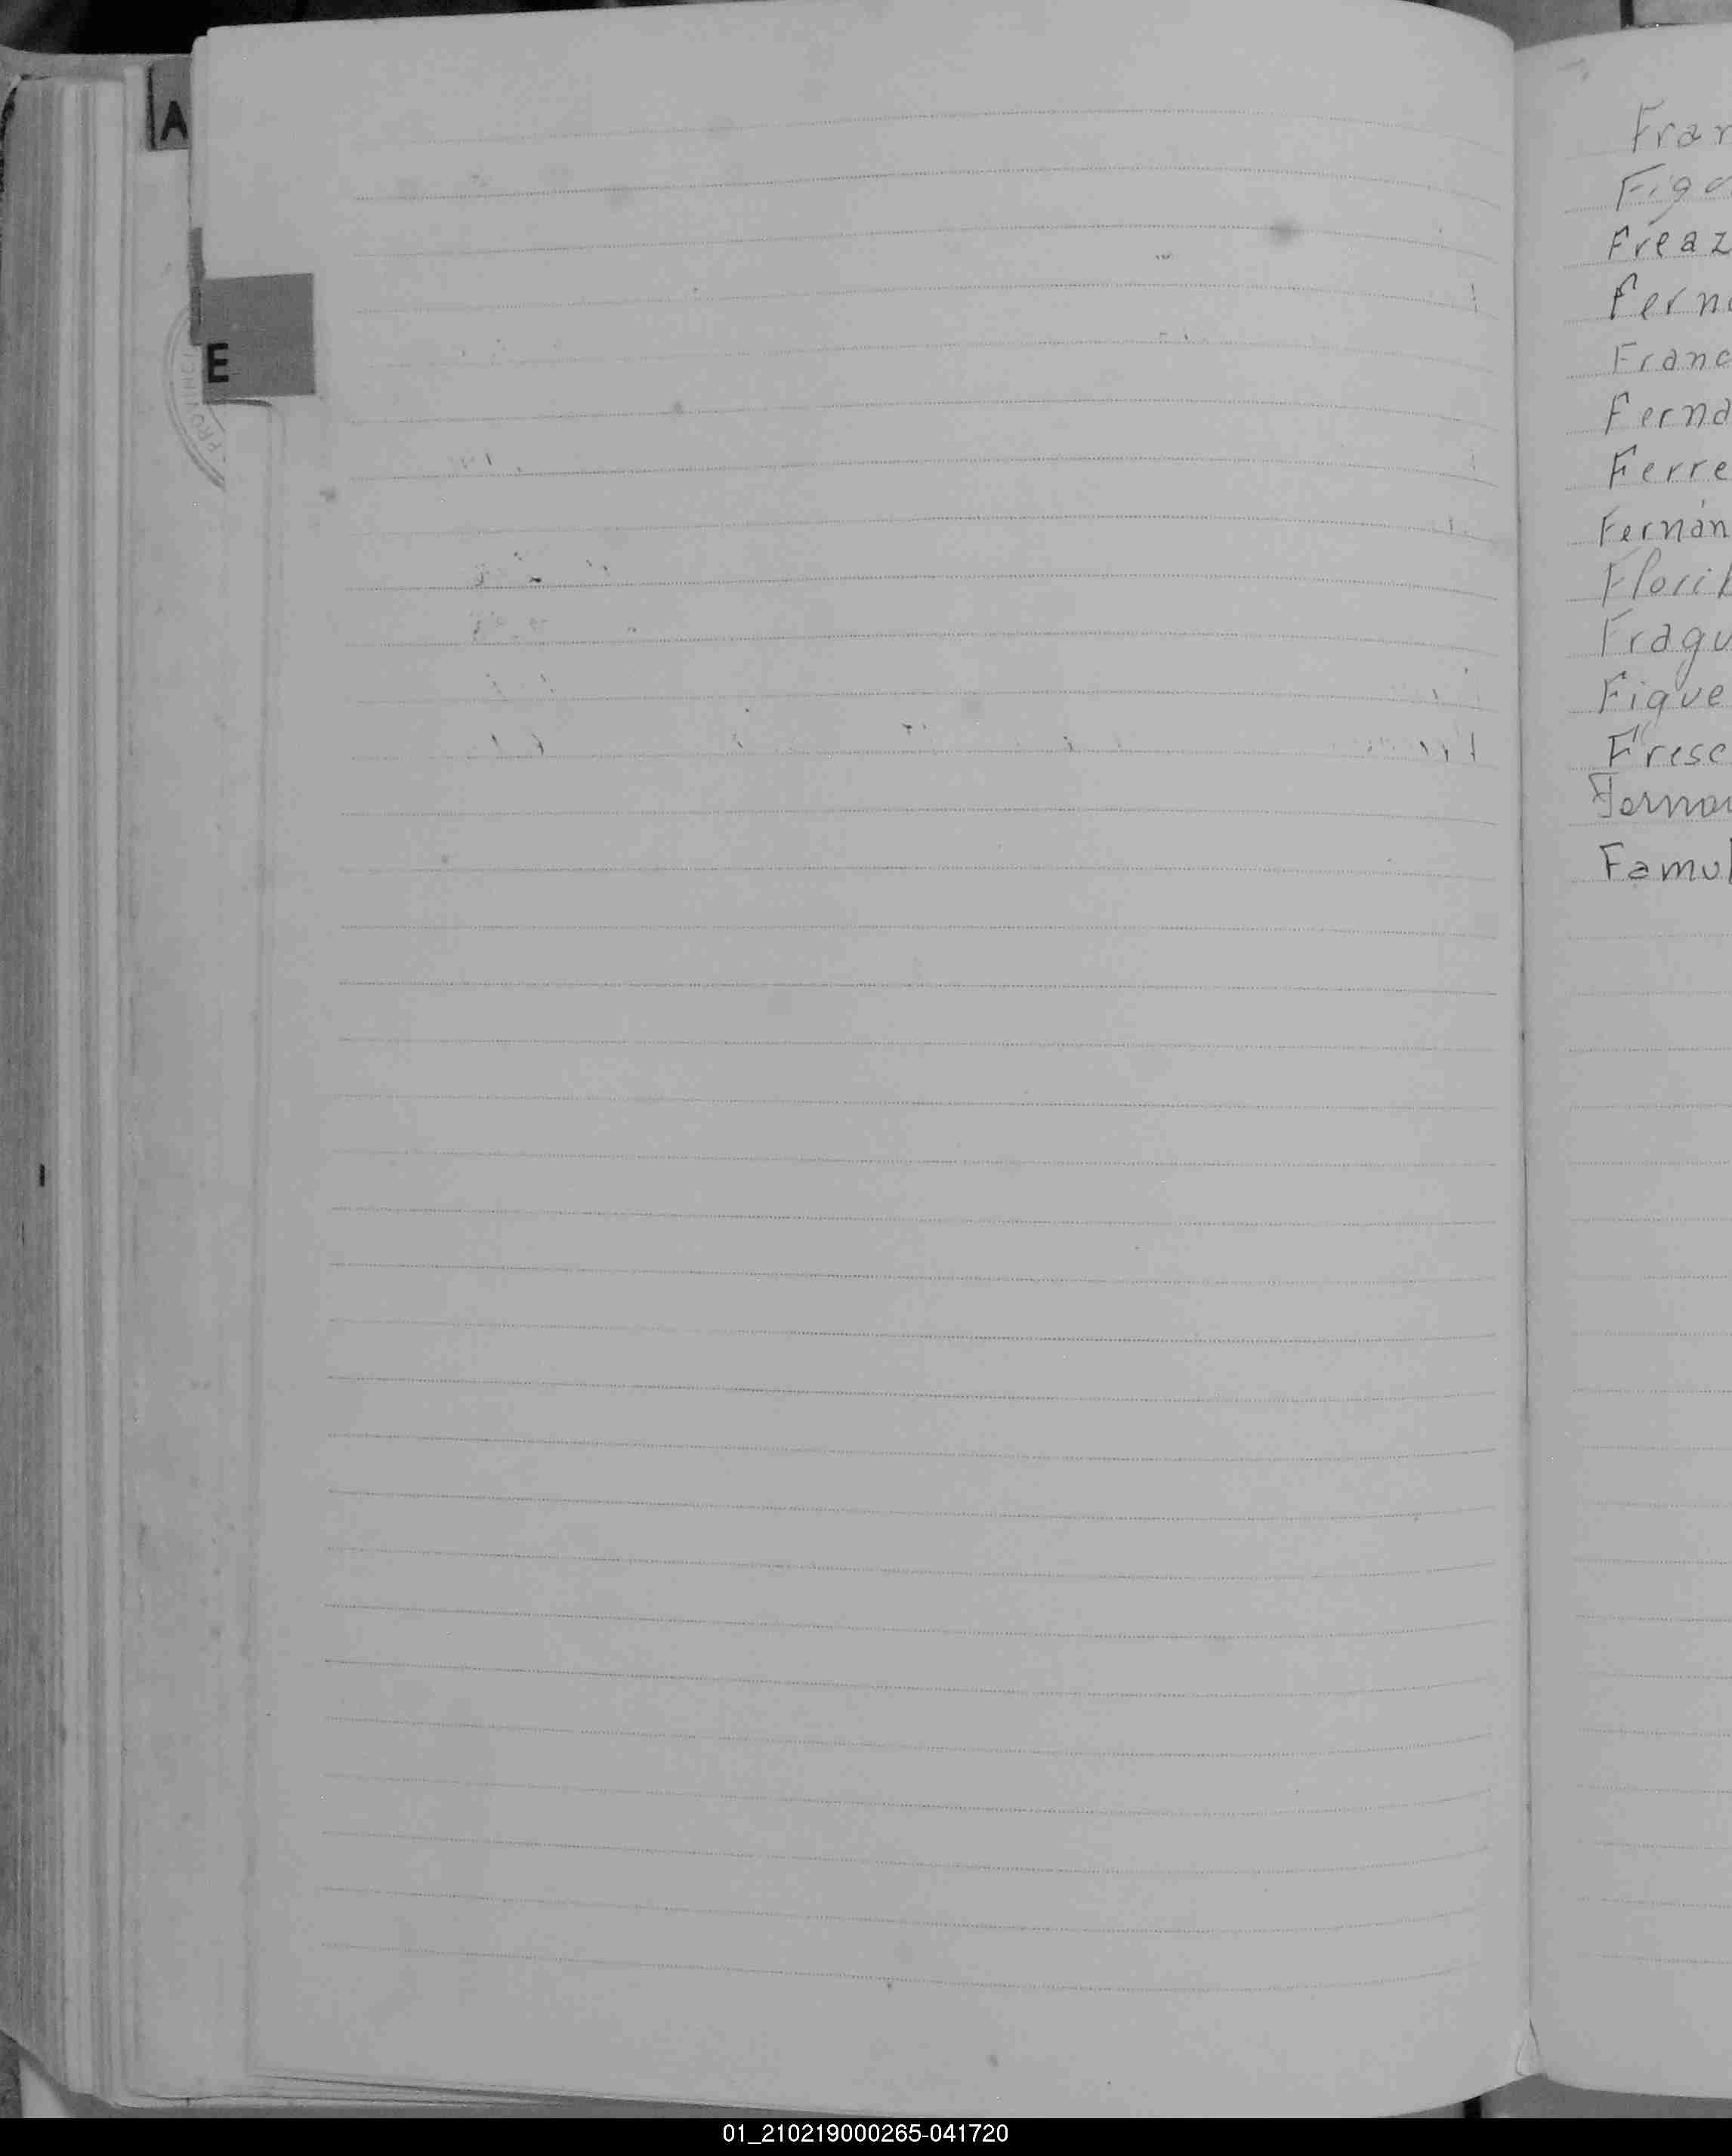 A
E
PROVINCI
Fran
Figu
Freaz
Fern
Franc
Ferna
Ferre
Fernán
Florib
Fragu
Figue
Fresc
Fernan
Famul
01_210219000265-041720